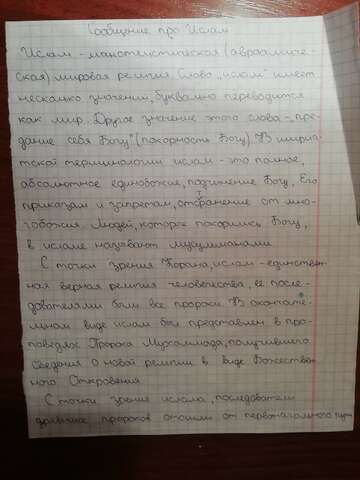 Сообщение про Ислам
Ислам - монотеистическая (авраамиче-
ская) мировая религия. Слово "ислам" имеет
несколько значений, буквально переводится
как мир. Другое значение этого слова - "пре-
дание себя Богу" (покорность Богу). В шариа-
тской терминологии ислам - это полное,
абсолютное единобожие, подчинение Богу, Его
приказам и запретам, отстранение от мно-
гобожия. Людей, которые покорились Богу,
в исламе называют мусульманами.
С точки зрения Корана, ислам - единствен-
ная верная религия человечества, её после-
дователями были все пророки. В окончате-
льном виде ислам был представлен в про-
поведях Пророка Мухаммада, получившего
сведения о новой религии в виде Божествен-
ного Откровения
С точки зрения ислама, последователи
древних пророков отошли от первоначального пути